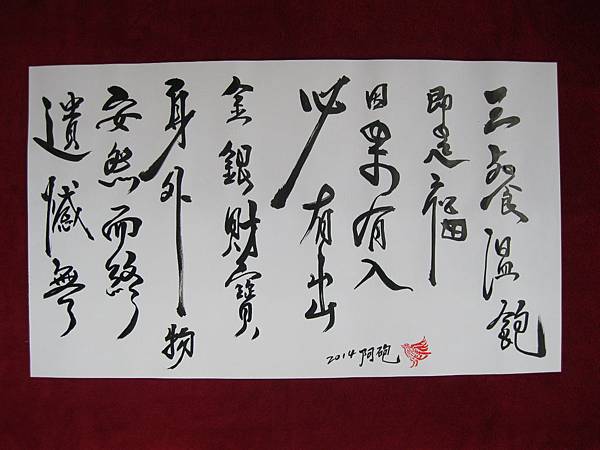 三餐溫飽
即是福
因果有入
必有出
金銀財寶
身外物
安然而終
遺憾無
2014 阿砲